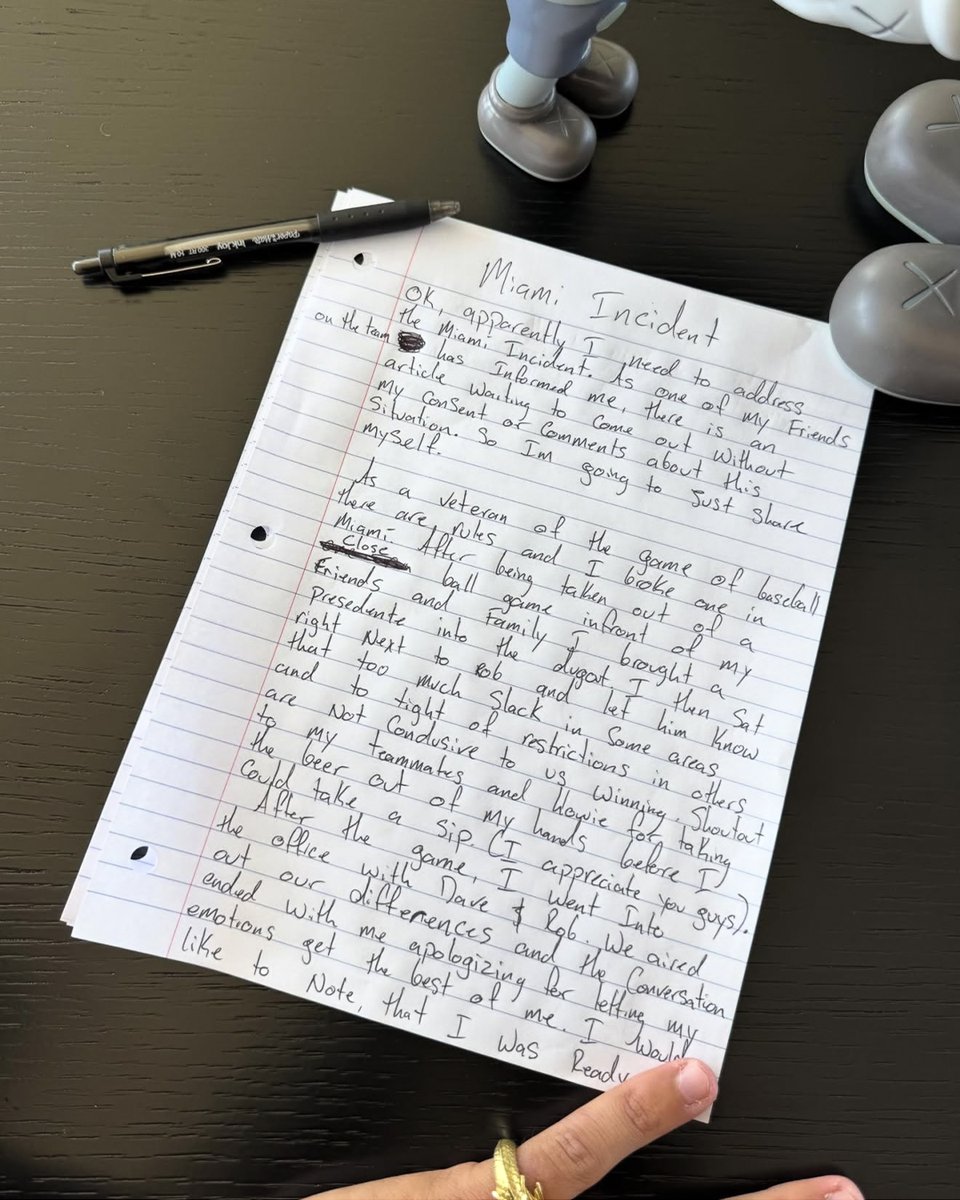 PaperMate InkJoy 300RT 1.0M
Miami Incident
OK, apparently I need to address
the Miami Incident. As one of my Friends
on the team has Informed me, there is an
article waiting to come out without
my consent or comments about this
Situation. So Im going to Just share
myself.
As a veteran of the game of baseball
there are rules and I broke one in
Miami. After being taken out of a
Close ball game infront of my
Friends and Family I brought a
Presedente into the dugout. I then Sat
right Next to Rob and let him know
that too much Slack in Some areas
and to tight of restrictions in others
are Not Condusive to us winning. Shoutout
to my teammates and howie for taking
the beer out of my hands before I
Could take a Sip. (I appreciate you guys).
After the game, I went Into
the office with Dave & Rob. We aired
out our differences and the Conversation
ended with me apologizing for letting my
emotions get the best of me. I Would
like to Note, that I was Ready